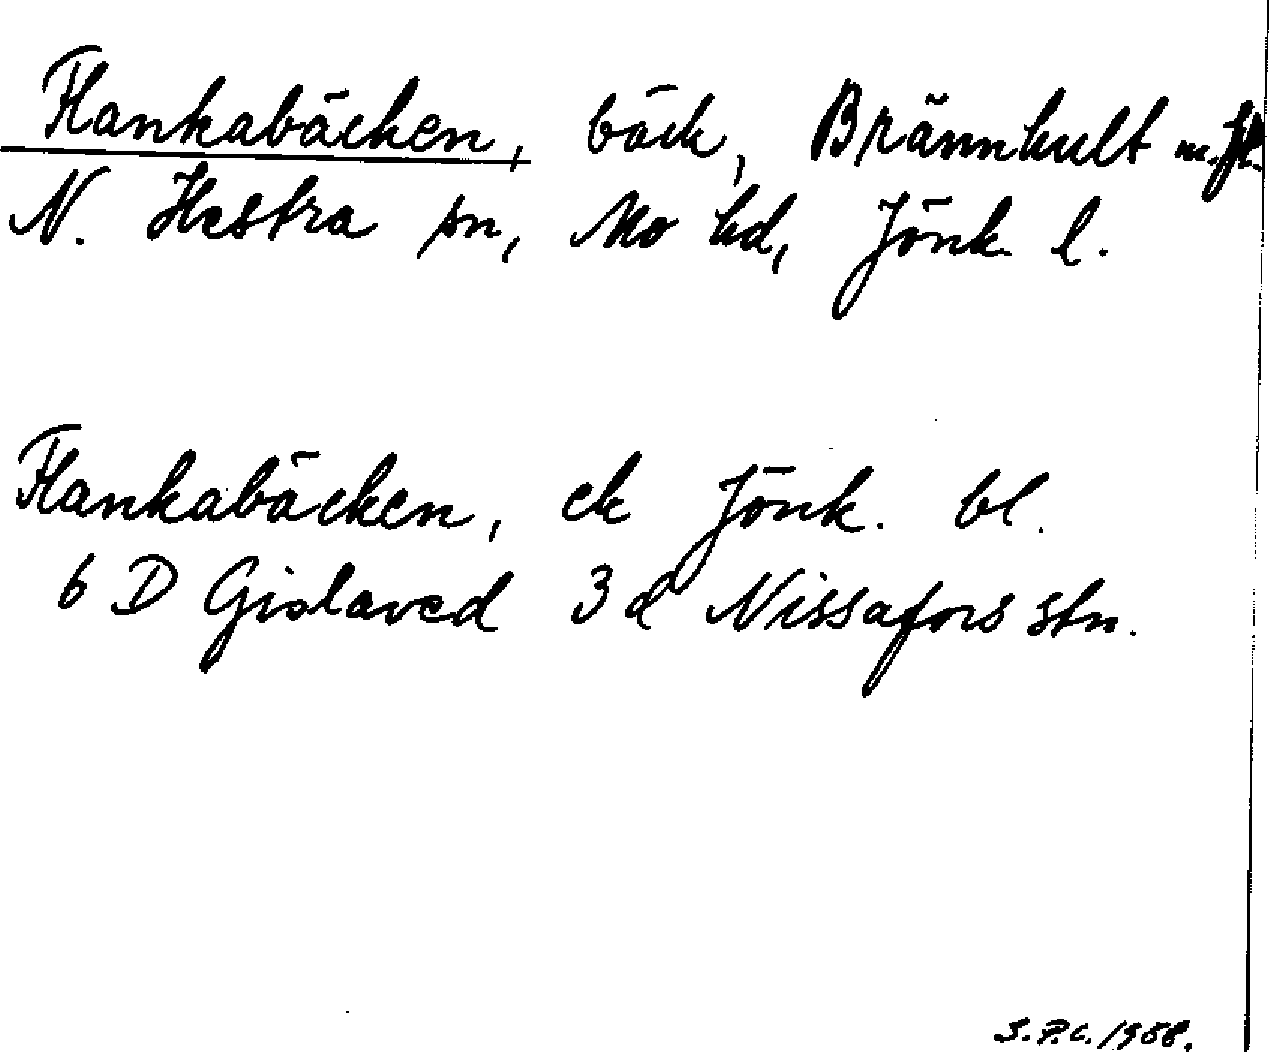 Flankabäcken, bäck, Brännhult m.fl.
N. Hestra sn, Mo hd, Jönk. l.
Flankabäcken, ek Jönk. bl.
6 D Gislaved 3 d Nissafors stn.
S.P.C. 1958.